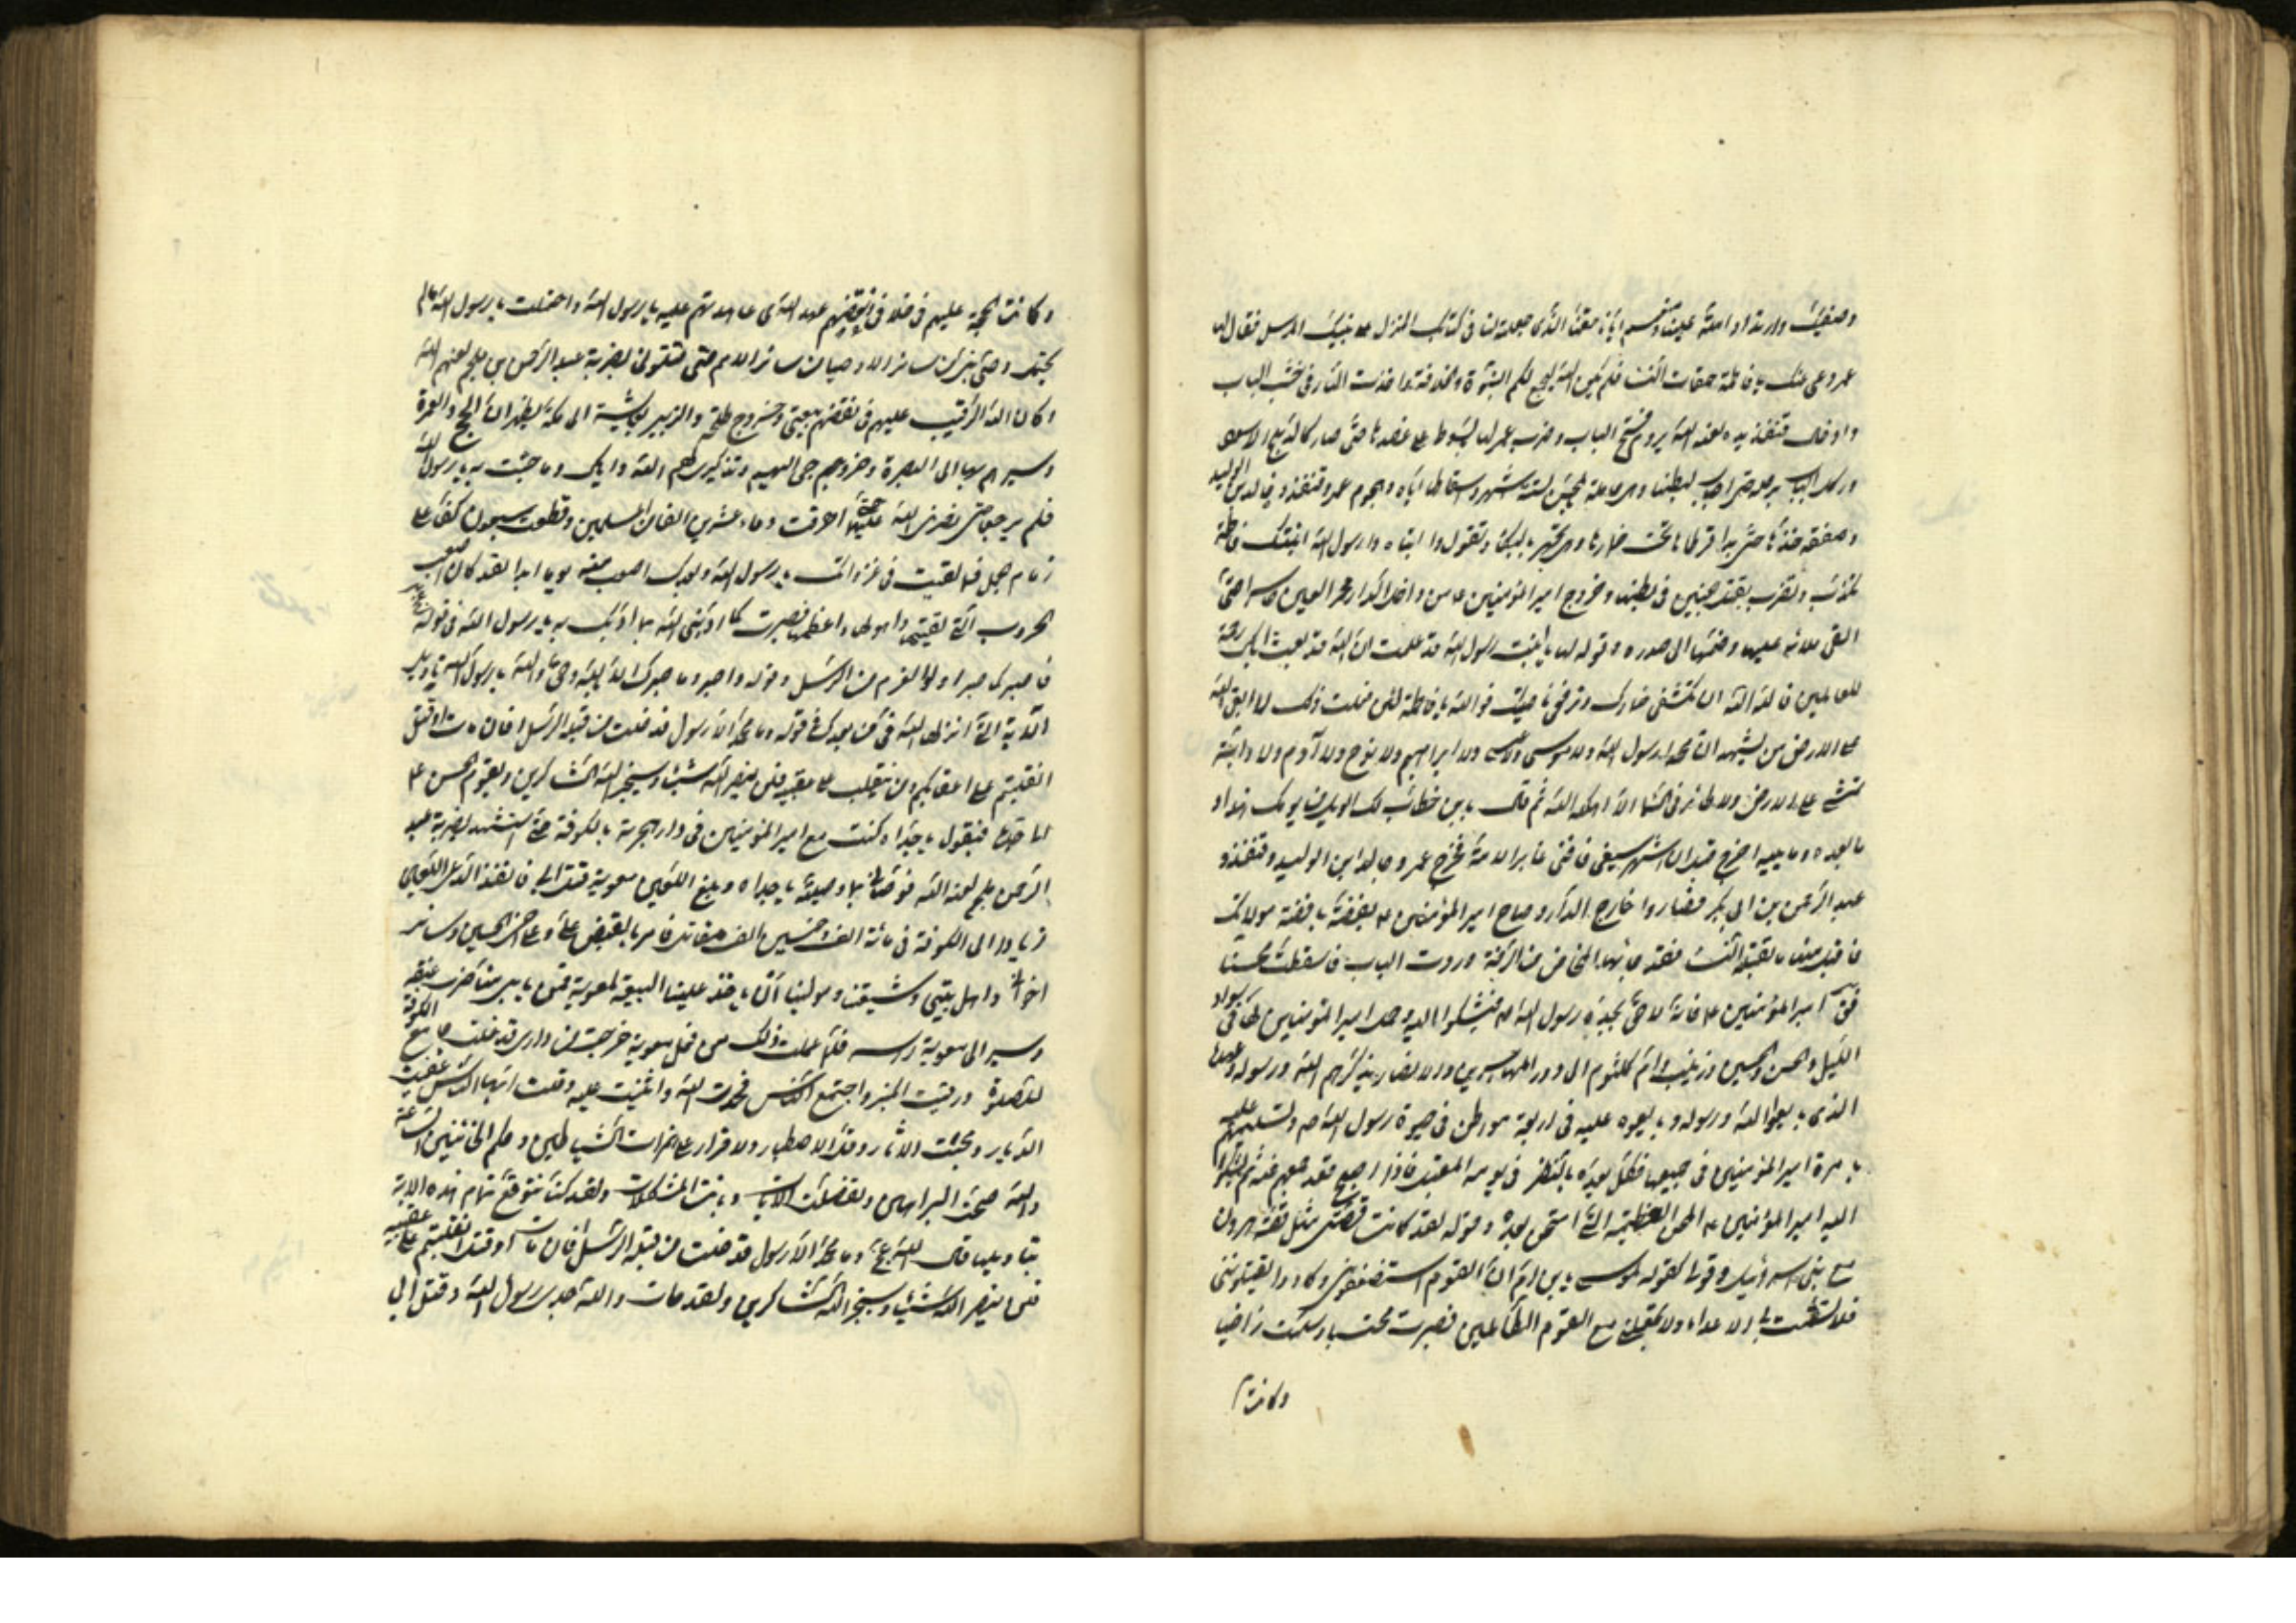 وصفيك وارتداد امته علينا ومنعهم ايانا حقنا الذى جعلته لنا فى كتابك المنزل على نبيك المرسل فقال لها
عمر دعى عنك يا فاطمة حمقات النساء فلم يكن الله ليجمع لكم النبوة والخلافة واخذت النار فى خشب الباب
وادخال قنفذ يده لعنه الله يروم فتح الباب وضرب عمر لها بالسوط على عضدها حتى صار كالدملج الاسود
وركل الباب برجله حتى اصاب بطنها وهى حاملة بالمحسن لستة اشهر واسقاطها اياه وهجوم عمر وقنفذ وخالد بن الوليد
وصفقه خدها حتى بدا قرطاها تحت خمارها وهى تجهر بالبكاء وتقول وا ابتاه وا رسول الله ابنتك فاطمة
تكذب وتضرب ويقتل جنين فى بطنها وخروج امير المؤمنين ع من داخل الدار محمر العين حاسرا حتى
القى ملائه عليها وضمها الى صدره وقوله لها يا بنت رسول الله قد علمت ان الله قد بعث اباك رحمة
للعالمين فالله الله ان تكشفى خمارك وترفعى ناصيتك فو الله يا فاطمة لئن فعلت ذلك لا ابقى الله
على الارض من يشهد ان محمدا رسول الله ولا موسى ولا عيسى ولا ابراهيم ولا نوح ولا آدم ولا دابة
تمشى على الارض ولا طائر فى السماء الا اهلكه الله ثم قال يا بن خطاب لك الويل من يومك هذا و
ما بعده وما يليه اخرج قبل ان اشهر سيفى فافنى غابر الامة فخرج عمر وخالد ابن الوليد وقنفذ و
عبد الرحمن بن ابى بكر فصاروا خارج الدار وصاح امير المؤمنين ع بفضة يا فضة مولاتك
فاقبلى منها ما تقبله النساء فقد جائها المخاض من الرفسة ورد الباب فاسقطت محسنا
فقال امير المؤمنين ع فانه لاحق بجده رسول الله ص فيشكو اليه وحمل امير المؤمنين لها فى سواد
الليل والحسن والحسين وزينب وام كلثوم الى دور المهاجرين والانصار يذكرهم الله ورسوله وعهده
الذى بايعوا الله ورسوله وبايعوه عليه فى اربعة مواطن فى حيوة رسول الله ص وتسليمهم عليه
بامرة امير المؤمنين فى جميعها فكل يعده بالنصر فى يومه المقبل فاذا اصبح قعد جميعهم عنه ثم يشكو
اليه امير المؤمنين ع المحن العظيمة التى امتحن بعده وقوله لقد كانت قصتى مثل قصة هرون
مع بنى اسرائيل وقولى كقوله لموسى يا بن ام ان القوم استضعفونى وكادوا يقتلوننى
فلا تشمت بى الاعداء ولا تجعلنى مع القوم الظالمين فصبرت محتسبا وسلمت راضيا
وكانت
وكانت الحجة عليهم فى خلافى ونقضهم عهد الله ى عاهدتهم عليه يا رسول الله واحتملت يا رسول الله ما لم
يحتمل وصى نبى من سائر الاوصياء من سائر الامم حتى قتلونى بضربة عبد الرحمن بن ملجم لعنهم الله
وكان الله الرقيب عليهم فى نقضهم بيعتى وخروج طلحة والزبير بعايشة الى مكة يظهران الحج والعمرة
وسيرهم بها الى البصرة وخروجى اليهم وتذكيرى لهم الله واياك وما جئت به يا رسول الله
فلم يرجعا حتى نصرنى الله عليهما حتى اهرقت دماء عشرين الفا من المسلمين وقطعت سبعون كفا على
زمام جمل فما لقيت فى غزواتك يا رسول الله وبعدك اصعب منه يوما ابدا لقد كان اصعب
الحروب التى لقيتها واهولها واعظمها فصبرت كما ادبنى الله بما ادبك به يا رسول الله فى قوله
فاصبر كما صبر اولوا العزم من الرسل وقوله واصبر وما صبرك الا بالله وحق والله يا رسول الله تاويل
الاية التى انزلها الله فى من بعدك فى قوله وما محمد الا رسول قد خلت من قبله الرسل افان مات او قتل
انقلبتم على اعقابكم ومن ينقلب على عقبيه فلن يضر الله شيئا وسيجزى الله الشاكرين ويقوم الحسن ع
الى جده فيقول يا جداه كنت مع امير المؤمنين فى دار هجرته بالكوفة حتى استشهد بضربة عبد
الرحمن بن ملجم لعنه الله فوصانى بما وصيته يا جداه وبلغ اللعين معوية قتل ابى فانفذ الدعى اللعين
زيادا الى الكوفة فى مائة الف وخمسين الف مقاتل فامر بالقبض على وعلى اخى الحسين وسائر
اخوانى واهل بيتى وشيعتنا وموالينا وان ياخذ علينا البيعة لمعوية فمن يابى منا ضرب عنقه
وسير الى معوية راسه فلما علمت ذلك من فعل معوية خرجت من دارى فدخلت جامع الكوفة
للصلوة ورقيت المنبر واجتمع الناس فحمدت الله واثنيت عليه وقلت ايها الناس عفيت
الديار ومحيت الاثار وقل الاصطبار ولا قرار على همزات الشياطين وحكم الخائنين الساعة
والله صحت البراهين وتفصلت الايات وبانت المشكلات ولقد كنا نتوقع تمام هذه الاية
بتاويلها قال الله عج وما محمد الا رسول قد خلت من قبله الرسل افان مات او قتل انقلبتم على عقبيه
فلن يضر الله شيئا وسيجزى الله الشاكرين ولقد مات والله جدى رسول الله وقتل ابى